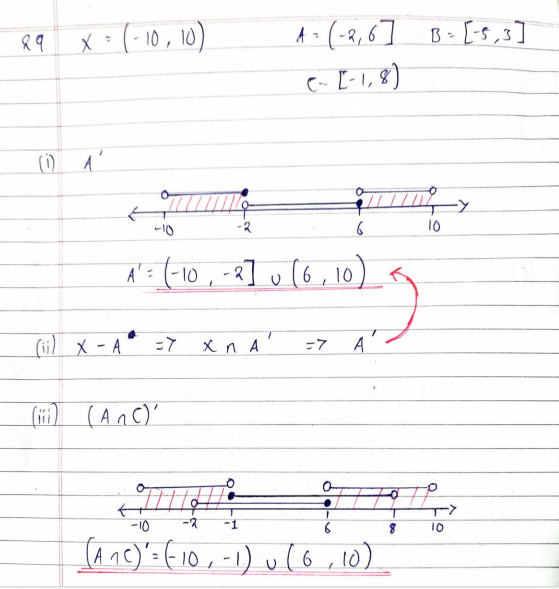 29 X = (-10, 10) A = (-2, 6] B = [-5, 3]
C = [-1, 8)
(i) A'
-10 -2 6 10
A' = (-10, -2] ∪ (6, 10)
(ii) X - A => X ∩ A' => A'
(iii) (A ∩ C)'
-10 -2 -1 6 8 10
(A ∩ C)' = (-10, -1) ∪ (6, 10)